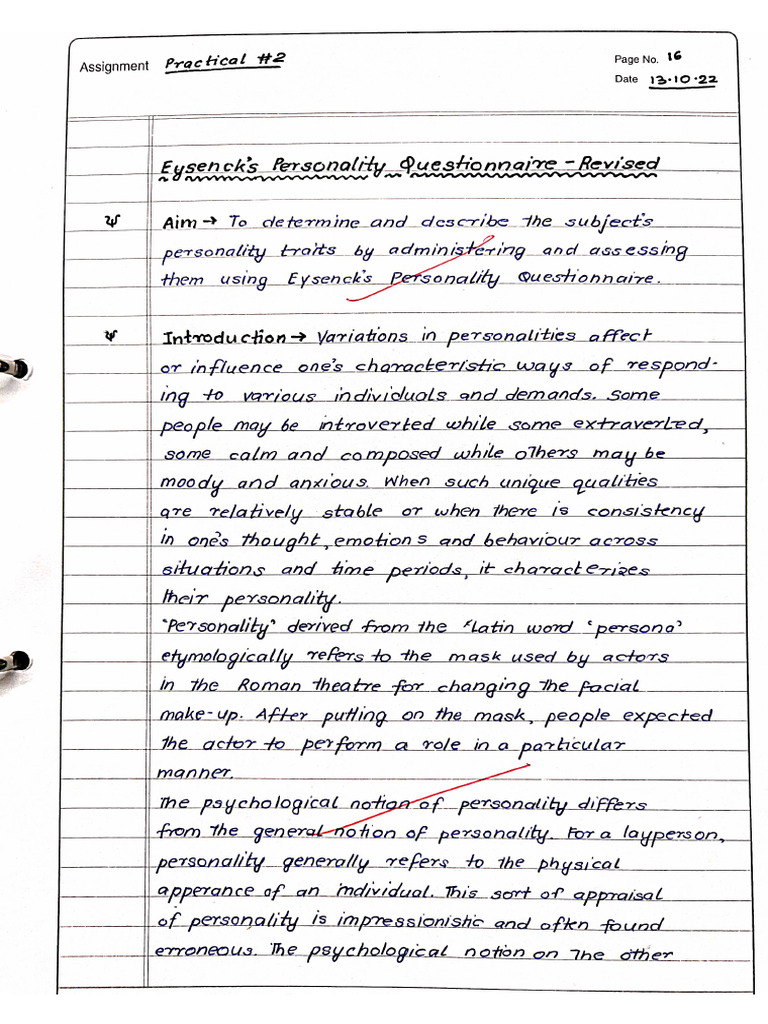 Assignment Practical #2
Page No. 16
Date 13.10.22
Eysenck's Personality Questionnaire - Revised
Ψ Aim → To determine and describe the subject's
personality traits by administering and assessing
them using Eysenck's Personality Questionnaire.
Ψ Introduction → Variations in personalities affect
or influence one's characteristic ways of respond-
ing to various individuals and demands. Some
people may be introverted while some extraverted,
some calm and composed while others may be
moody and anxious. When such unique qualities
are relatively stable or when there is consistency
in one's thought, emotions and behaviour across
situations and time periods, it characterizes
their personality.
"Personality" derived from the Latin word 'persona'
etymologically refers to the mask used by actors
in the Roman theatre for changing the facial
make-up. After putting on the mask, people expected
the actor to perform a role in a particular
manner.
The psychological notion of personality differs
from the general notion of personality. For a layperson,
personality generally refers to the physical
apperance of an individual. This sort of appraisal
of personality is impressionistic and oftn found
erroneous. The psychological notion on the other